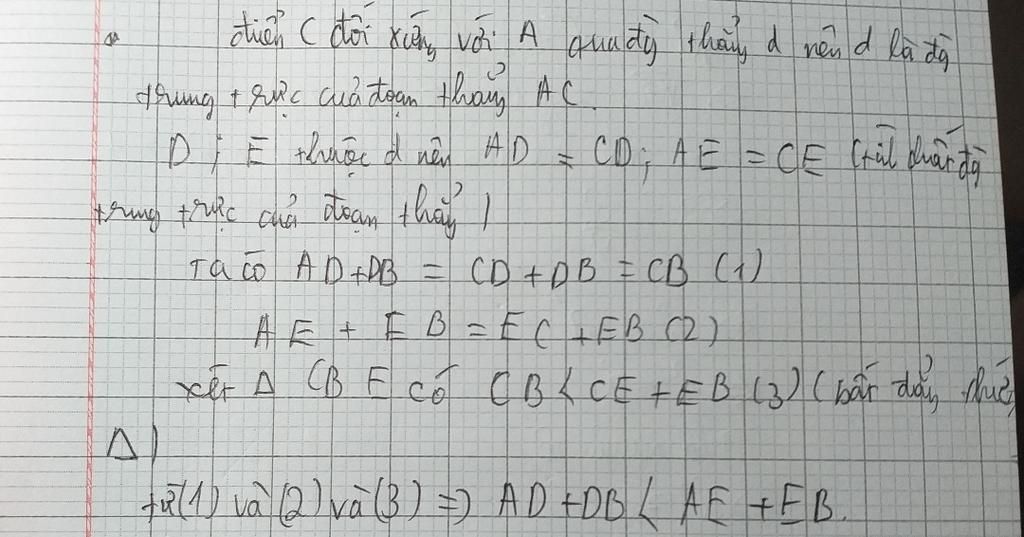 a điểm C đối xứng với A qua đg thẳng d nên d là đg
trung trực của đoạn thẳng AC.
D ; E thuộc d nên AD = CD ; AE = CE (t/c chất đg
trung trực của đoạn thẳng )
Ta có AD+DB = CD + DB = CB (1)
AE + EB = EC +EB (2)
xét Δ CBE có CB < CE + EB (3) (bất đẳng thức
Δ)
từ (1) và (2) và (3) => AD +DB < AE +EB.